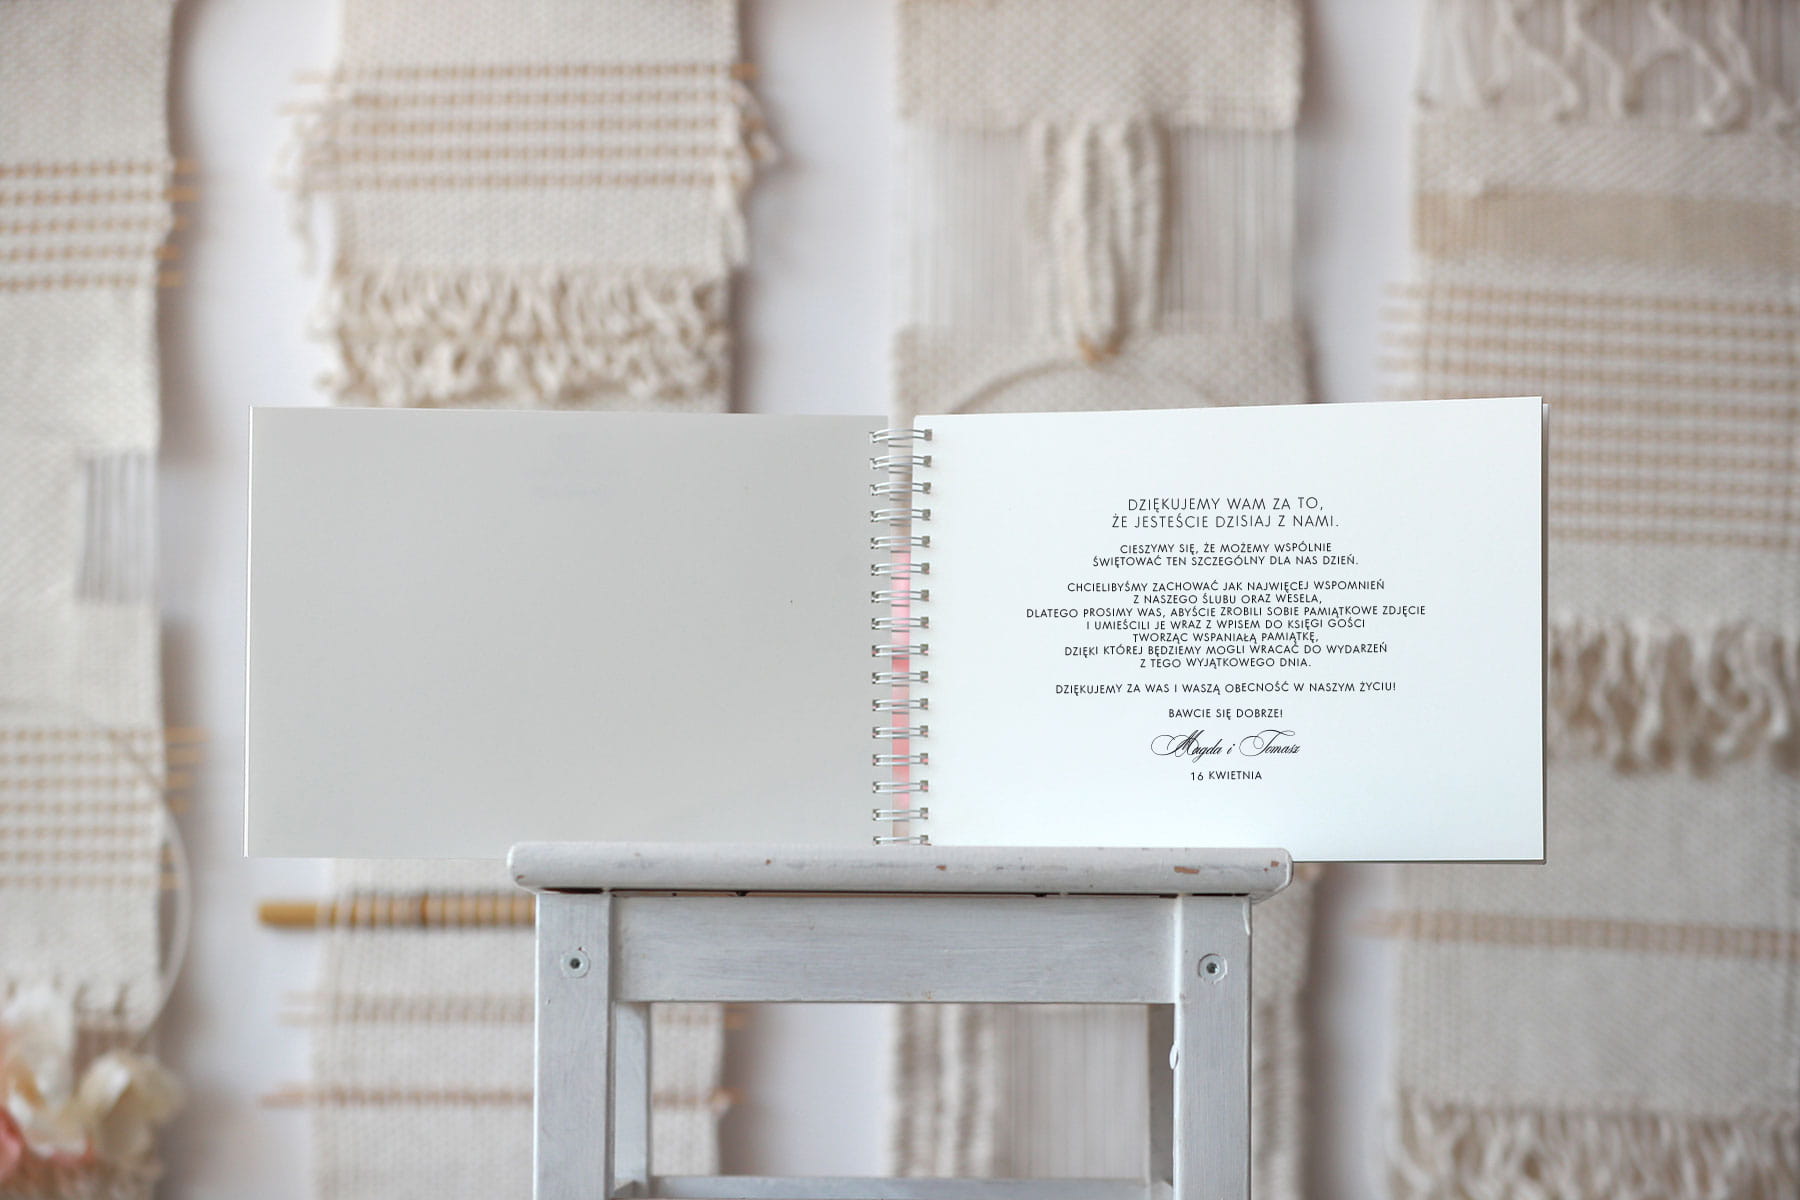 DZIĘKUJEMY WAM ZA TO,
ŻE JESTEŚCIE DZISIAJ Z NAMI.
CIESZYMY SIĘ, ŻE MOŻEMY WSPÓLNIE
ŚWIĘTOWAĆ TEN SZCZEGÓLNY DLA NAS DZIEŃ.
CHCIELIBYŚMY ZACHOWAĆ JAK NAJWIĘCEJ WSPOMNIEŃ
Z NASZEGO ŚLUBU ORAZ WESELA,
DLATEGO PROSIMY WAS, ABYŚCIE ZROBILI SOBIE PAMIĄTKOWE ZDJĘCIE
I UMIEŚCILI JE WRAZ Z WPISEM DO KSIĘGI GOŚCI
TWORZĄC WSPANIAŁĄ PAMIĄTKĘ,
DZIĘKI KTÓREJ BĘDZIEMY MOGLI WRACAĆ DO WYDARZEŃ
Z TEGO WYJĄTKOWEGO DNIA.
DZIĘKUJEMY ZA WAS I WASZĄ OBECNOŚĆ W NASZYM ŻYCIU!
BAWCIE SIĘ DOBRZE!
Magda i Tomasz
16 KWIETNIA